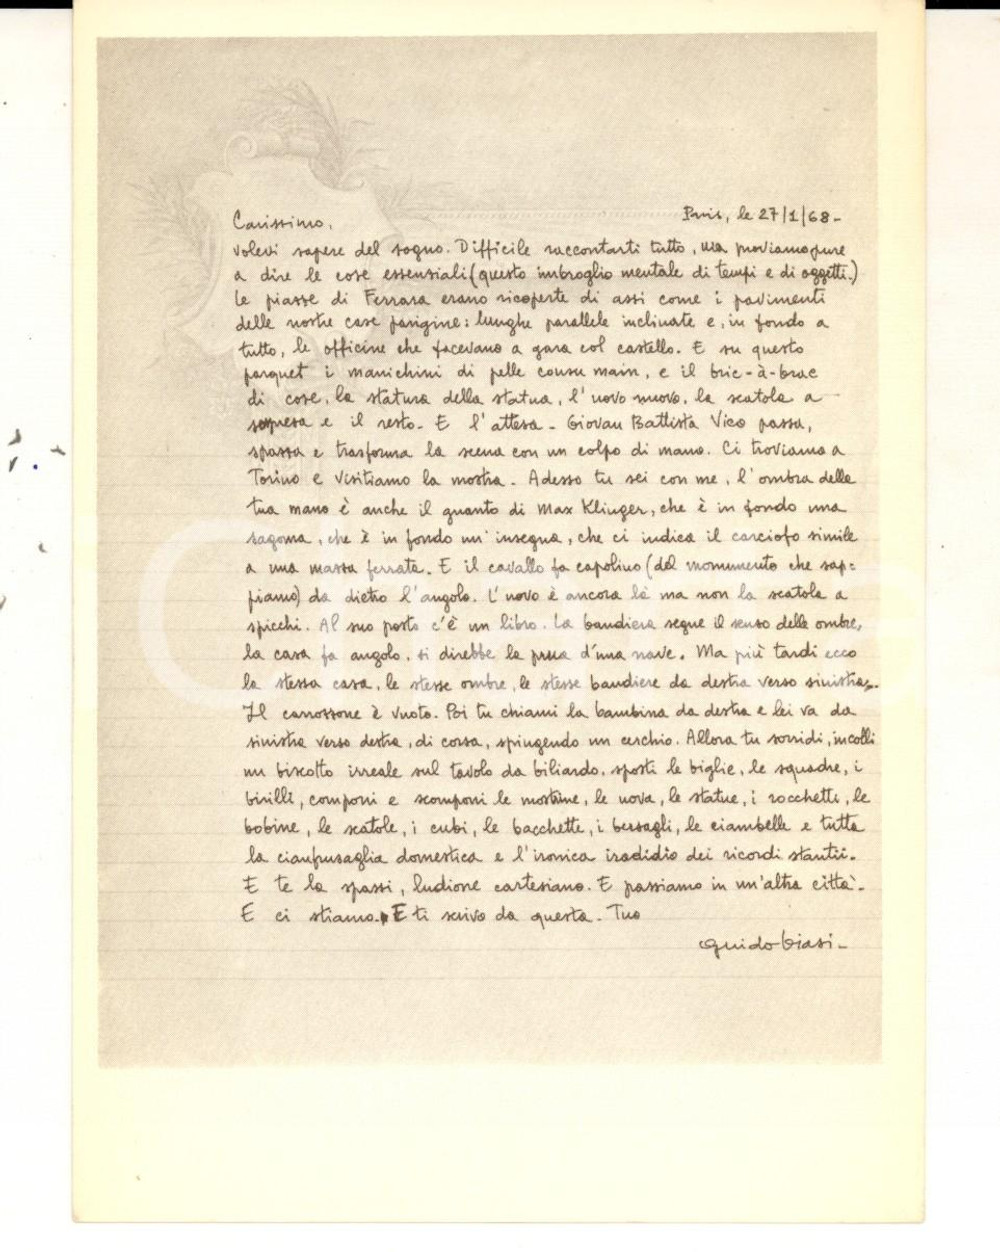 Paris, le 27/1/68-
Carissimo,
volevi sapere del sogno. Difficile raccontarti tutto, ma proviamo pure
a dire le cose essenziali (questo imbroglio mentale di tempi e di oggetti.)
Le piazze di Ferrara erano ricoperte di assi come i pavimenti
delle nostre case parigine: lunghe parallele inclinate e, in fondo a
tutto, le officine che facevano a gara col castello. E su questo
parquet i manichini di pelle cousu main, e il bric-à-brac
di cose, la statura della statua, l'uovo nuovo, la scatola a
sorpresa e il resto. E l'attesa - Giovan Battista Vico passa,
spassa e trasforma la scena con un colpo di mano. Ci troviamo a
Torino e visitiamo la mostra. Adesso tu sei con me, l'ombra della
tua mano è anche il guanto di Max Klinger, che è in fondo una
sagoma, che è in fondo un'insegna, che ci indica il carciofo simile
a una mazza ferrata. E il cavallo fa capolino (del monumento che sap=
piamo) da dietro l'angolo. L'uovo è ancora là ma non la scatola a
spicchi. Al suo posto c'è un libro. La bandiera segue il senso delle ombre,
la casa fa angolo, si direbbe la prua d'una nave. Ma più tardi ecco
la stessa casa, le stesse ombre, le stesse bandiere da destra verso sinistra.
Il carrozzone è vuoto. Poi tu chiami la bambina da destra e lei va da
sinistra verso destra, di corsa, spingendo un cerchio. Allora tu sorridi, incolli
un biscotto irreale sul tavolo da biliardo, sposti le biglie, le squadre, i
birilli, componi e scomponi le mostrine, le uova, le statue, i rocchetti, le
bobine, le scatole, i cubi, le bacchette, i bersagli, le ciambelle e tutta
la cianfrusaglia domestica e l'ironica iradidio dei ricordi stantii.
E te la spassi, ludione cartesiano. E passiamo in un'altra città.
E ci stiamo. E ti scrivo da questa. Tuo
guido biasi-